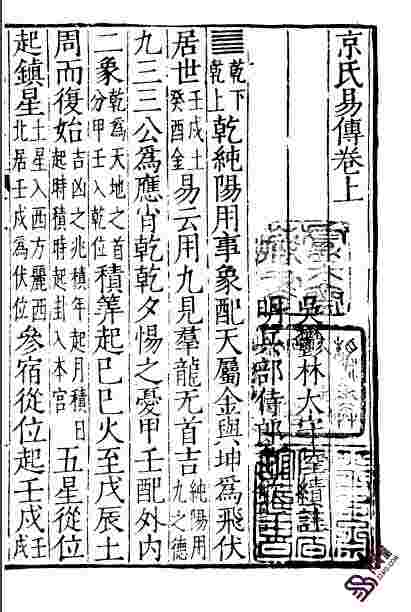 京氏易傳卷上
吳鬱林太守陸績註
明兵部侍郎
䷀乾下乾上乾純陽用事象配天屬金與坤爲飛伏
居世壬戌土癸酉金易云用九見羣龍无首吉純陽用九之德
九三三公爲應肖乾乾夕惕之憂甲壬配外内
二象乾爲天地之首分甲壬入乾位積筭起己巳火至戊辰土
周而復始吉凶之兆積年起月積日起時積時起封入本宮五星從位
起鎮星土星入西方麗西北居壬戌爲伏位參宿從位起壬戌壬戌